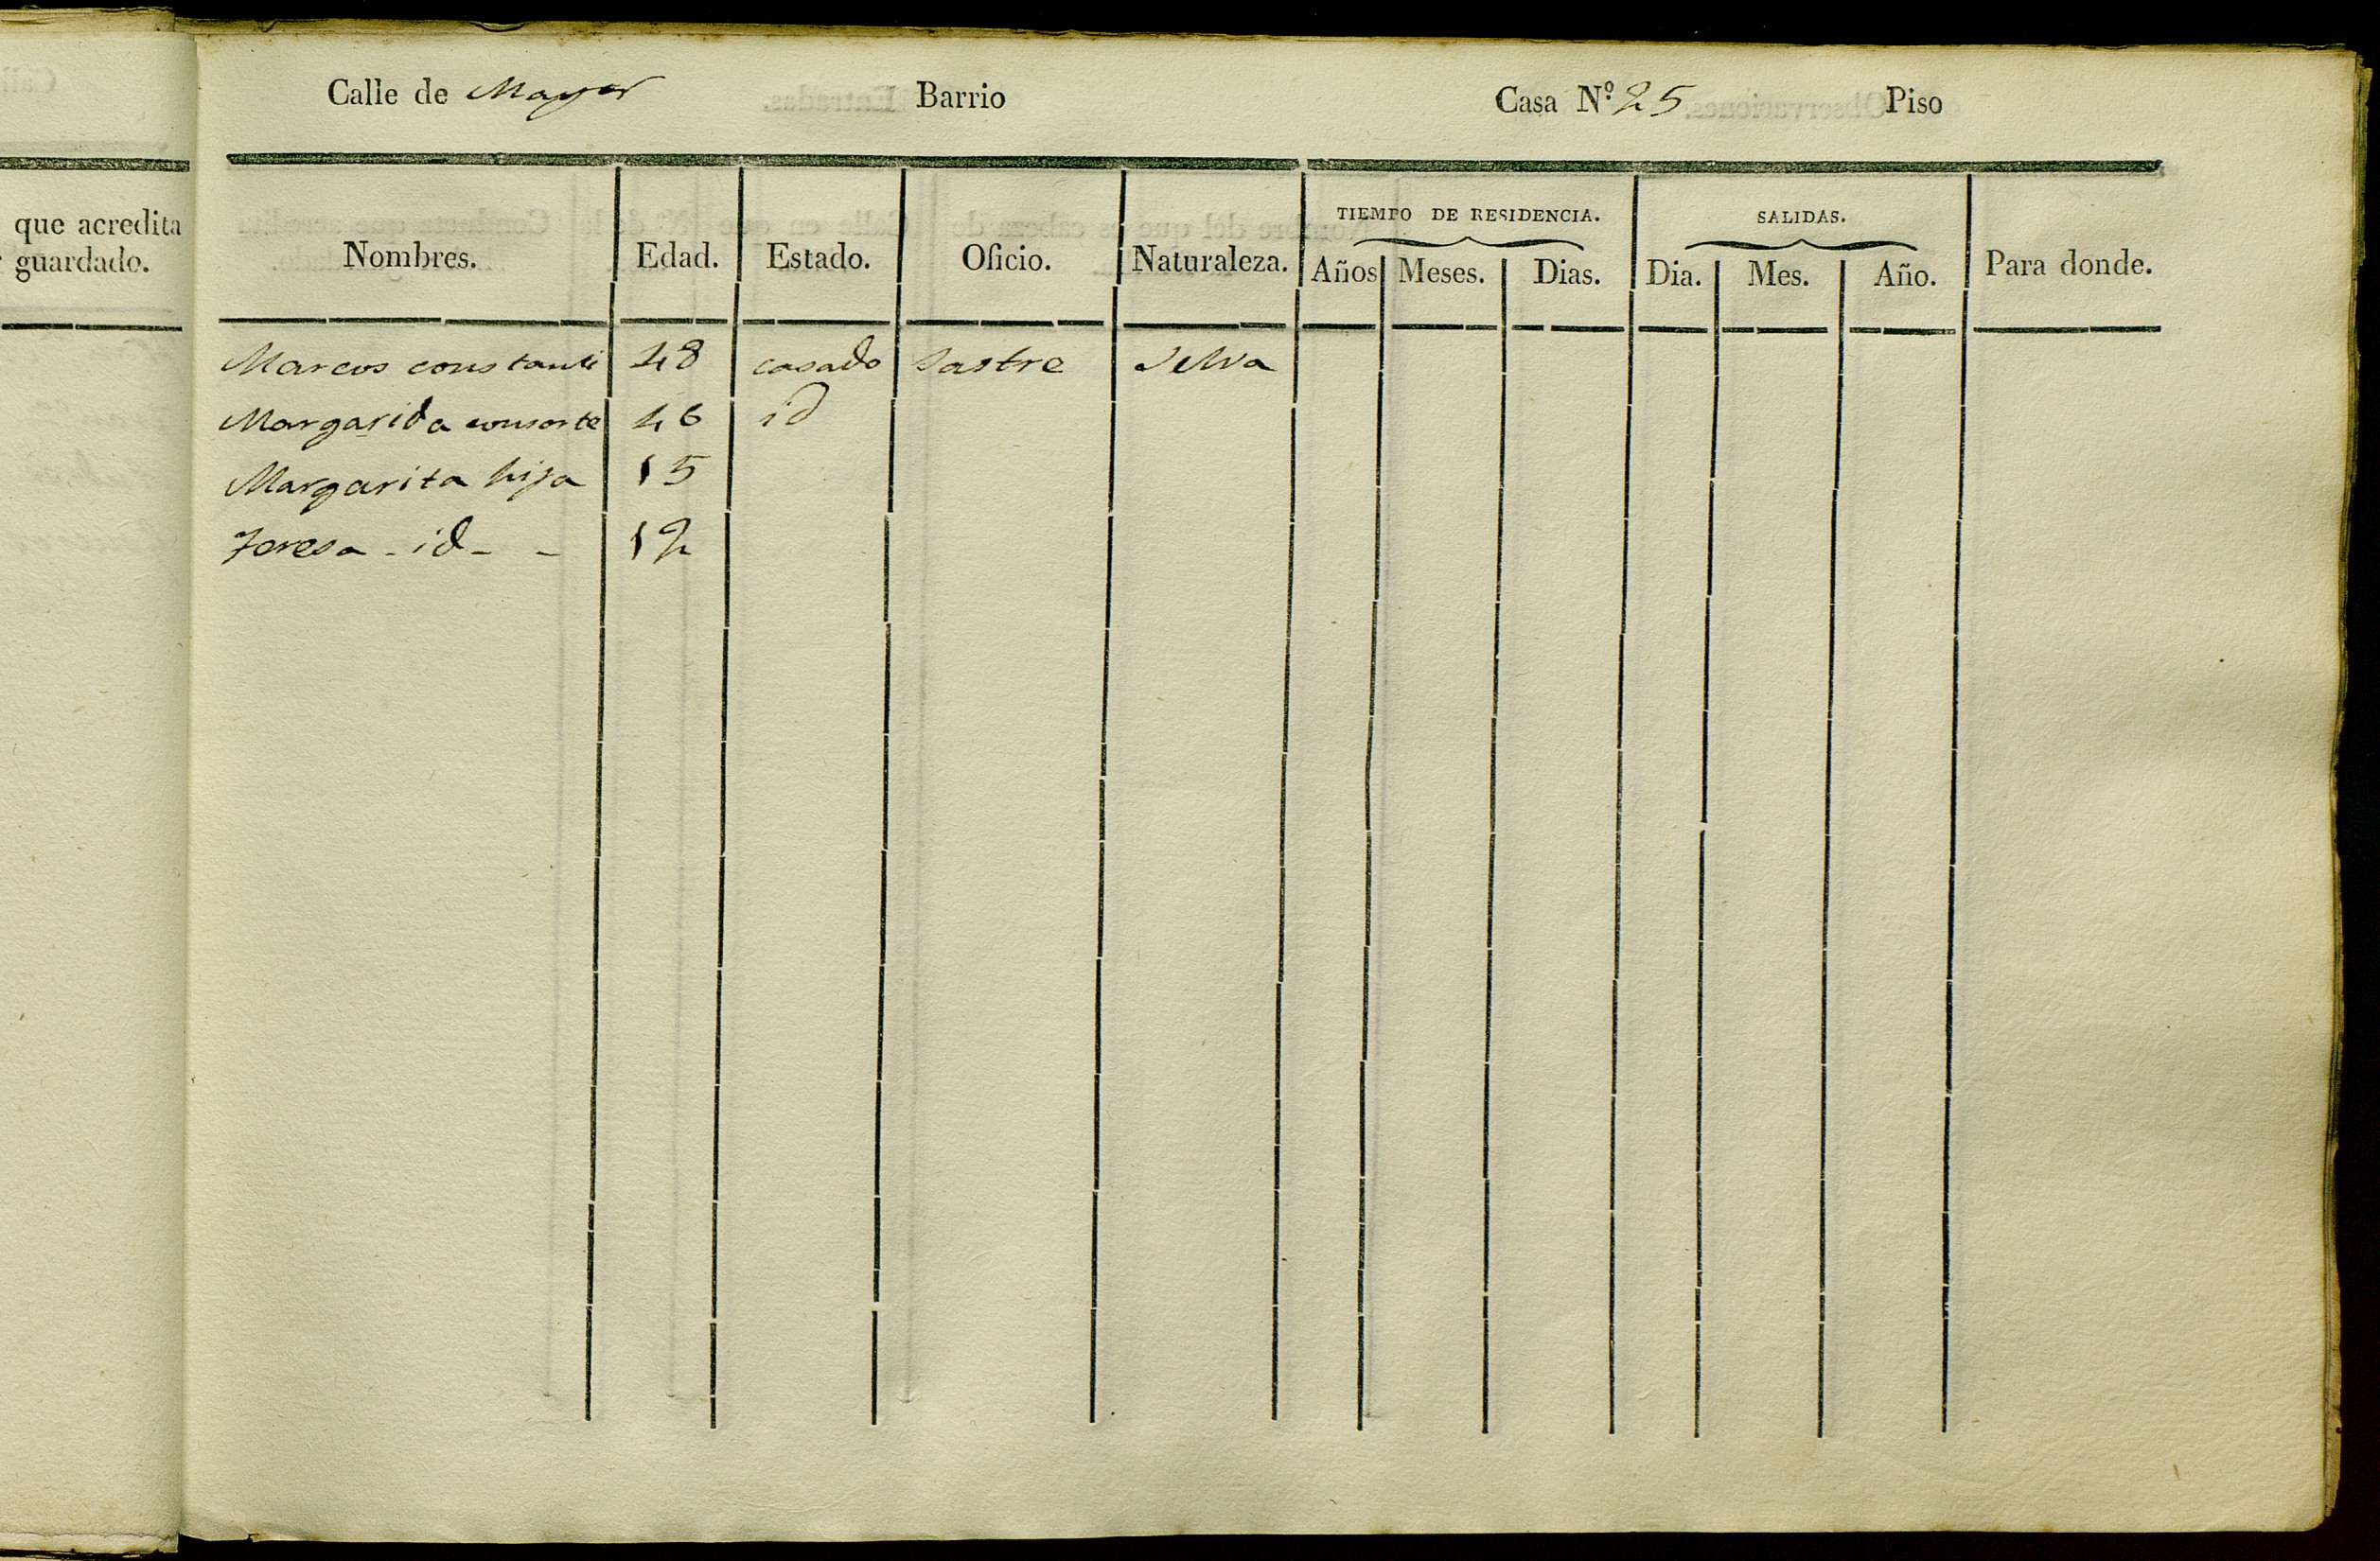 que acredita
guardado.
Calle de Mayor Barrio Casa Nº 25 Piso
TIEMPO DE RESIDENCIA. SALIDAS.
Nombres. Edad. Estado. Oficio. Naturaleza. Años Meses. Dias. Dia. Mes. Año. Para donde.
Marcos constanti 48 casado Sastre Selva
Margarida consorte 46 id
Margarita hija 15
Teresa - id - - 12